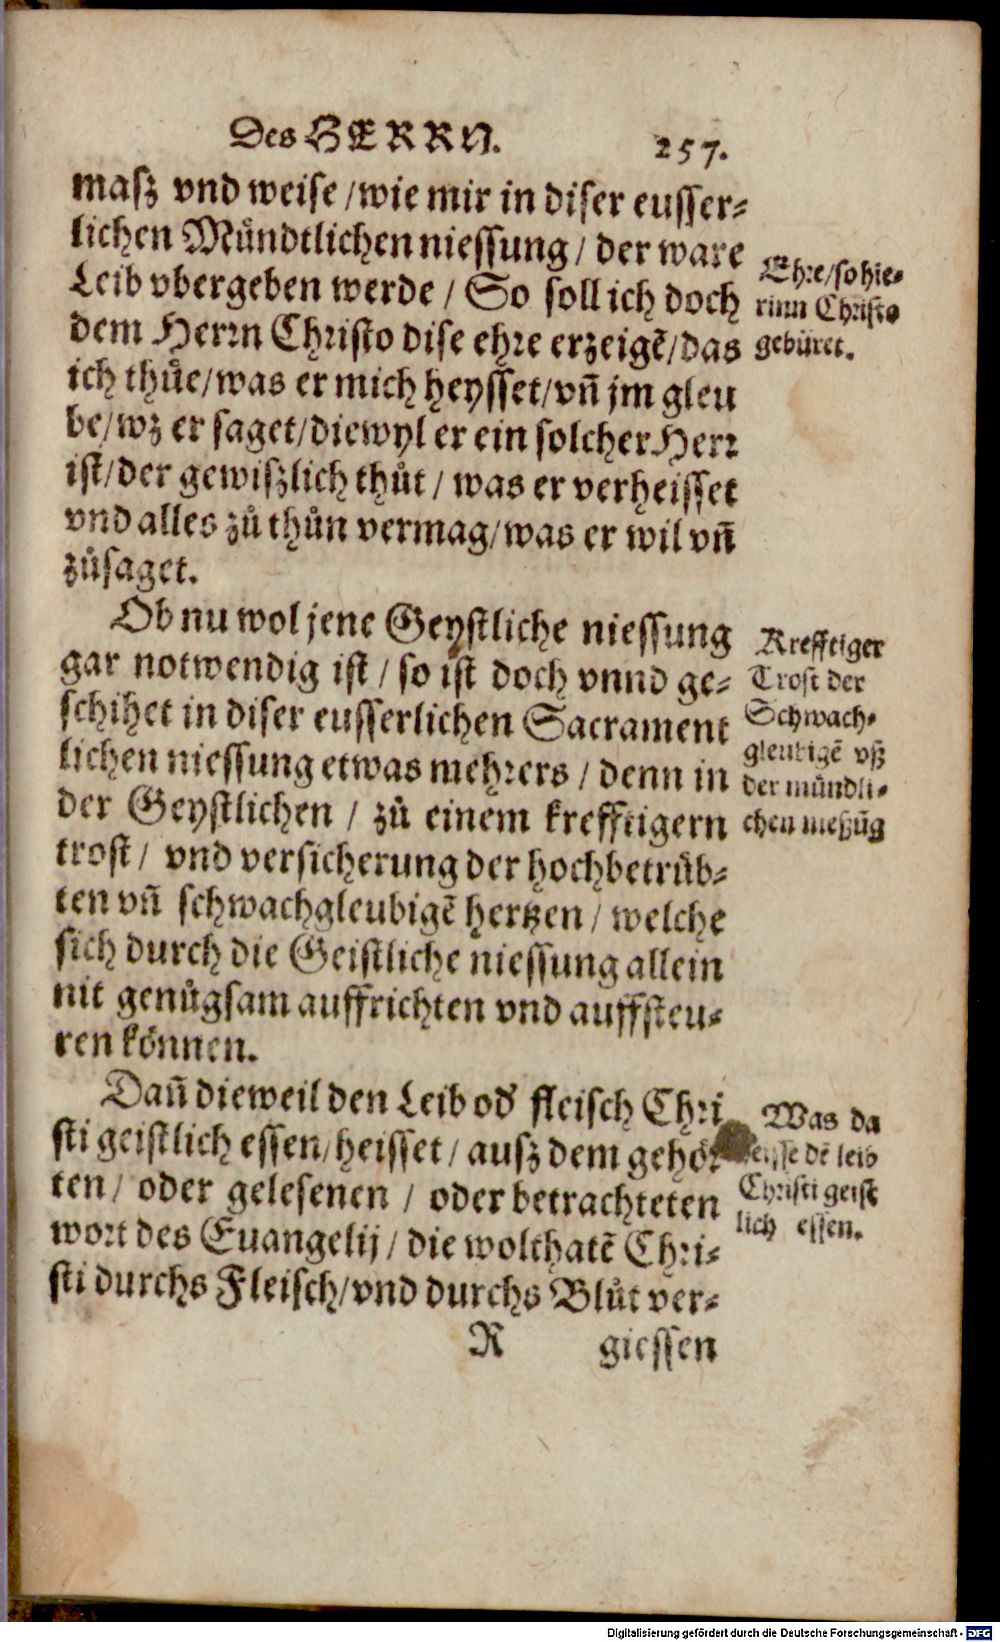 Des HERRN. 257.
masz vnd weise / wie mir in diser eusser-
lichen Mündtlichen niessung / der ware
Leib vbergeben werde / So soll ich doch
dem Herrn Christo dise ehre erzeigẽ / das
ich thüe / was er mich heysset / vñ jm gleu
be / wz er saget / diewyl er ein solcher Herr
ist / der gewiszlich thůt / was er verheisset
vnd alles zů thůn vermag / was er wil vñ
zůsaget.
Ehre / so hie-
rinn Christo
gebüret.
Ob nu wol jene Geystliche niessung
gar notwendig ist / so ist doch vnnd ge-
schihet in diser eusserlichen Sacrament
lichen niessung etwas mehrers / denn in
der Geystlichen / zů einem krefftigern
trost / vnd versicherung der hochbetrüb-
ten vñ schwachgleubigẽ hertzen / welche
sich durch die Geistliche niessung allein
nit genůgsam auffrichten vnd auffsteu-
ren können.
Krefftiger
Trost der
Schwach-
gleubigẽ vsz
der mündli-
chen nieszũg
Dañ dieweil den Leib od' fleisch Chri
sti geistlich essen / heisset / ausz dem gehör
ten / oder gelesenen / oder betrachteten
wort des Euangelij / die wolthatẽ Chri-
sti durchs Fleisch / vnd durchs Blůt ver-
Was da
heisse dẽ leib
Christi geist
lich essen.
R giessen
Digitalisierung gefördert durch die Deutsche Forschungsgemeinschaft - DFG